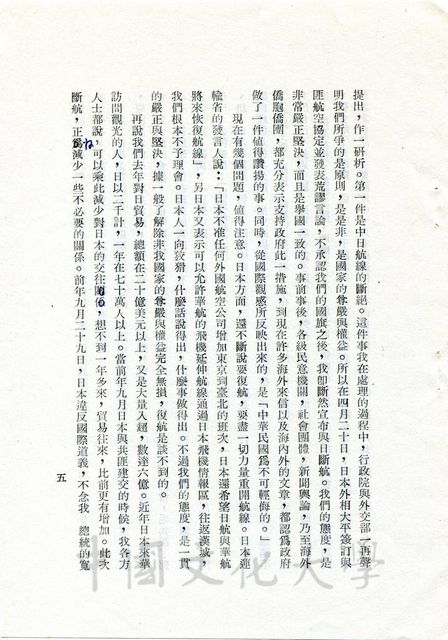 提出，作一研析。第一件是中日航線的斷絕。這件事我在處理的過程中，行政院與外交部一再聲
明我們所爭的是原則，是是非，是國家的尊嚴與權益。所以在四月二十日，日本外相大平簽訂與
匪航空協定並發表荒謬言論，不承認我們的國旗之後，我卽斷然宣布與日斷航。我們的態度，是
非常嚴正堅決，而且是舉國一致的。事前事後，各級民意機關，社會團體，新聞輿論，乃至海外
僑胞僑團，都充分表示支持政府此一措施，到現在許多海外來信以及海內外的文章，都認爲政府
做了一件値得讚揚的事。同時，從國際觀感所反映出來的，是「中華民國爲不可輕侮的。」
現在有幾個問題，値得注意。日本方面，還不斷說要復航，要盡一切力量重開航線。日本運
輸省的發言人說：「日本不准任何外國航空公司增加東京到臺北的班次，日本還希望日航與華航
將來恢復航線」，另日本又表示可以允許華航的飛機延伸航線通過日本飛機情報區，往返漢城，
我們根本不予理會。日本人一向狡猾，什麼話說得出，什麼事做得出。不過我們的態度，是一貫
的嚴正與堅決，據一般了解除非我國家的尊嚴與權益完全無損，復航是談不到的。
再說我們去年對日貿易，總額在二十億美元以上，又是大量入超，數達六億。近年日本來華
訪問觀光的人，日以二千計，一年在七十萬人以上。當前年九月日本與共匪建交的時候，我各方
人士都說，可以乘此減少對日本的交往關係，想不到一年多來，貿易往來，比前更有增加。此次
斷航，正爲減少一些不必要的關係。前年九月二十九日，日本違反國際道義，不念我　總統的寬
五
中國文化大學